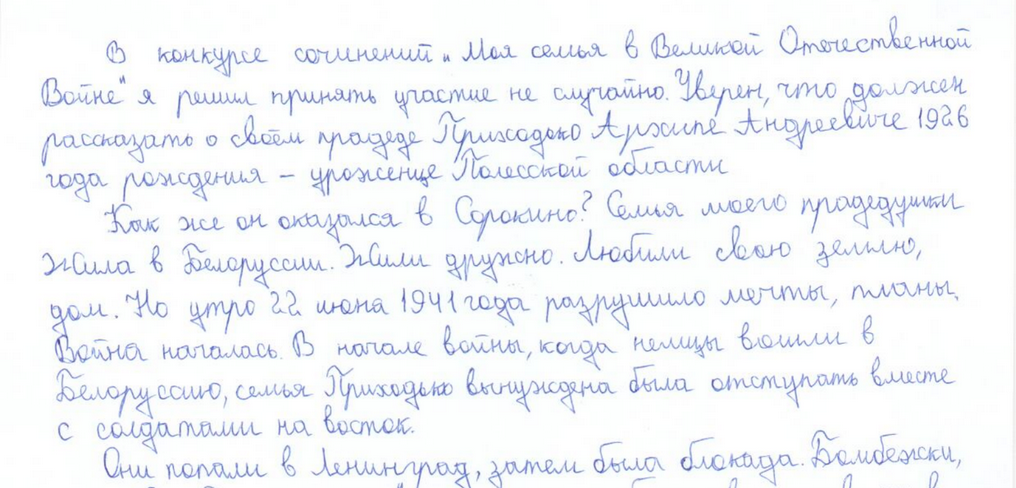 В конкурсе сочинений „Моя семья в Великой Отечественной
Войне" я решил принять участие не случайно. Уверен, что должен
рассказать о своём прадеде Приходько Архипе Андреевиче 1926
года рождения – уроженце Полесской области
Как же он оказался в Сорокино? Семья моего прадедушки
жила в Белоруссии. Жили дружно. Любили свою землю,
дом. Но утро 22 июня 1941 года разрушило мечты, планы.
Война началась. В начале войны, когда немцы вошли в
Белоруссию, семья Приходько вынуждена была отступать вместе
с солдатами на восток.
Они попали в Ленинград, затем была блокада. Бомбежки,